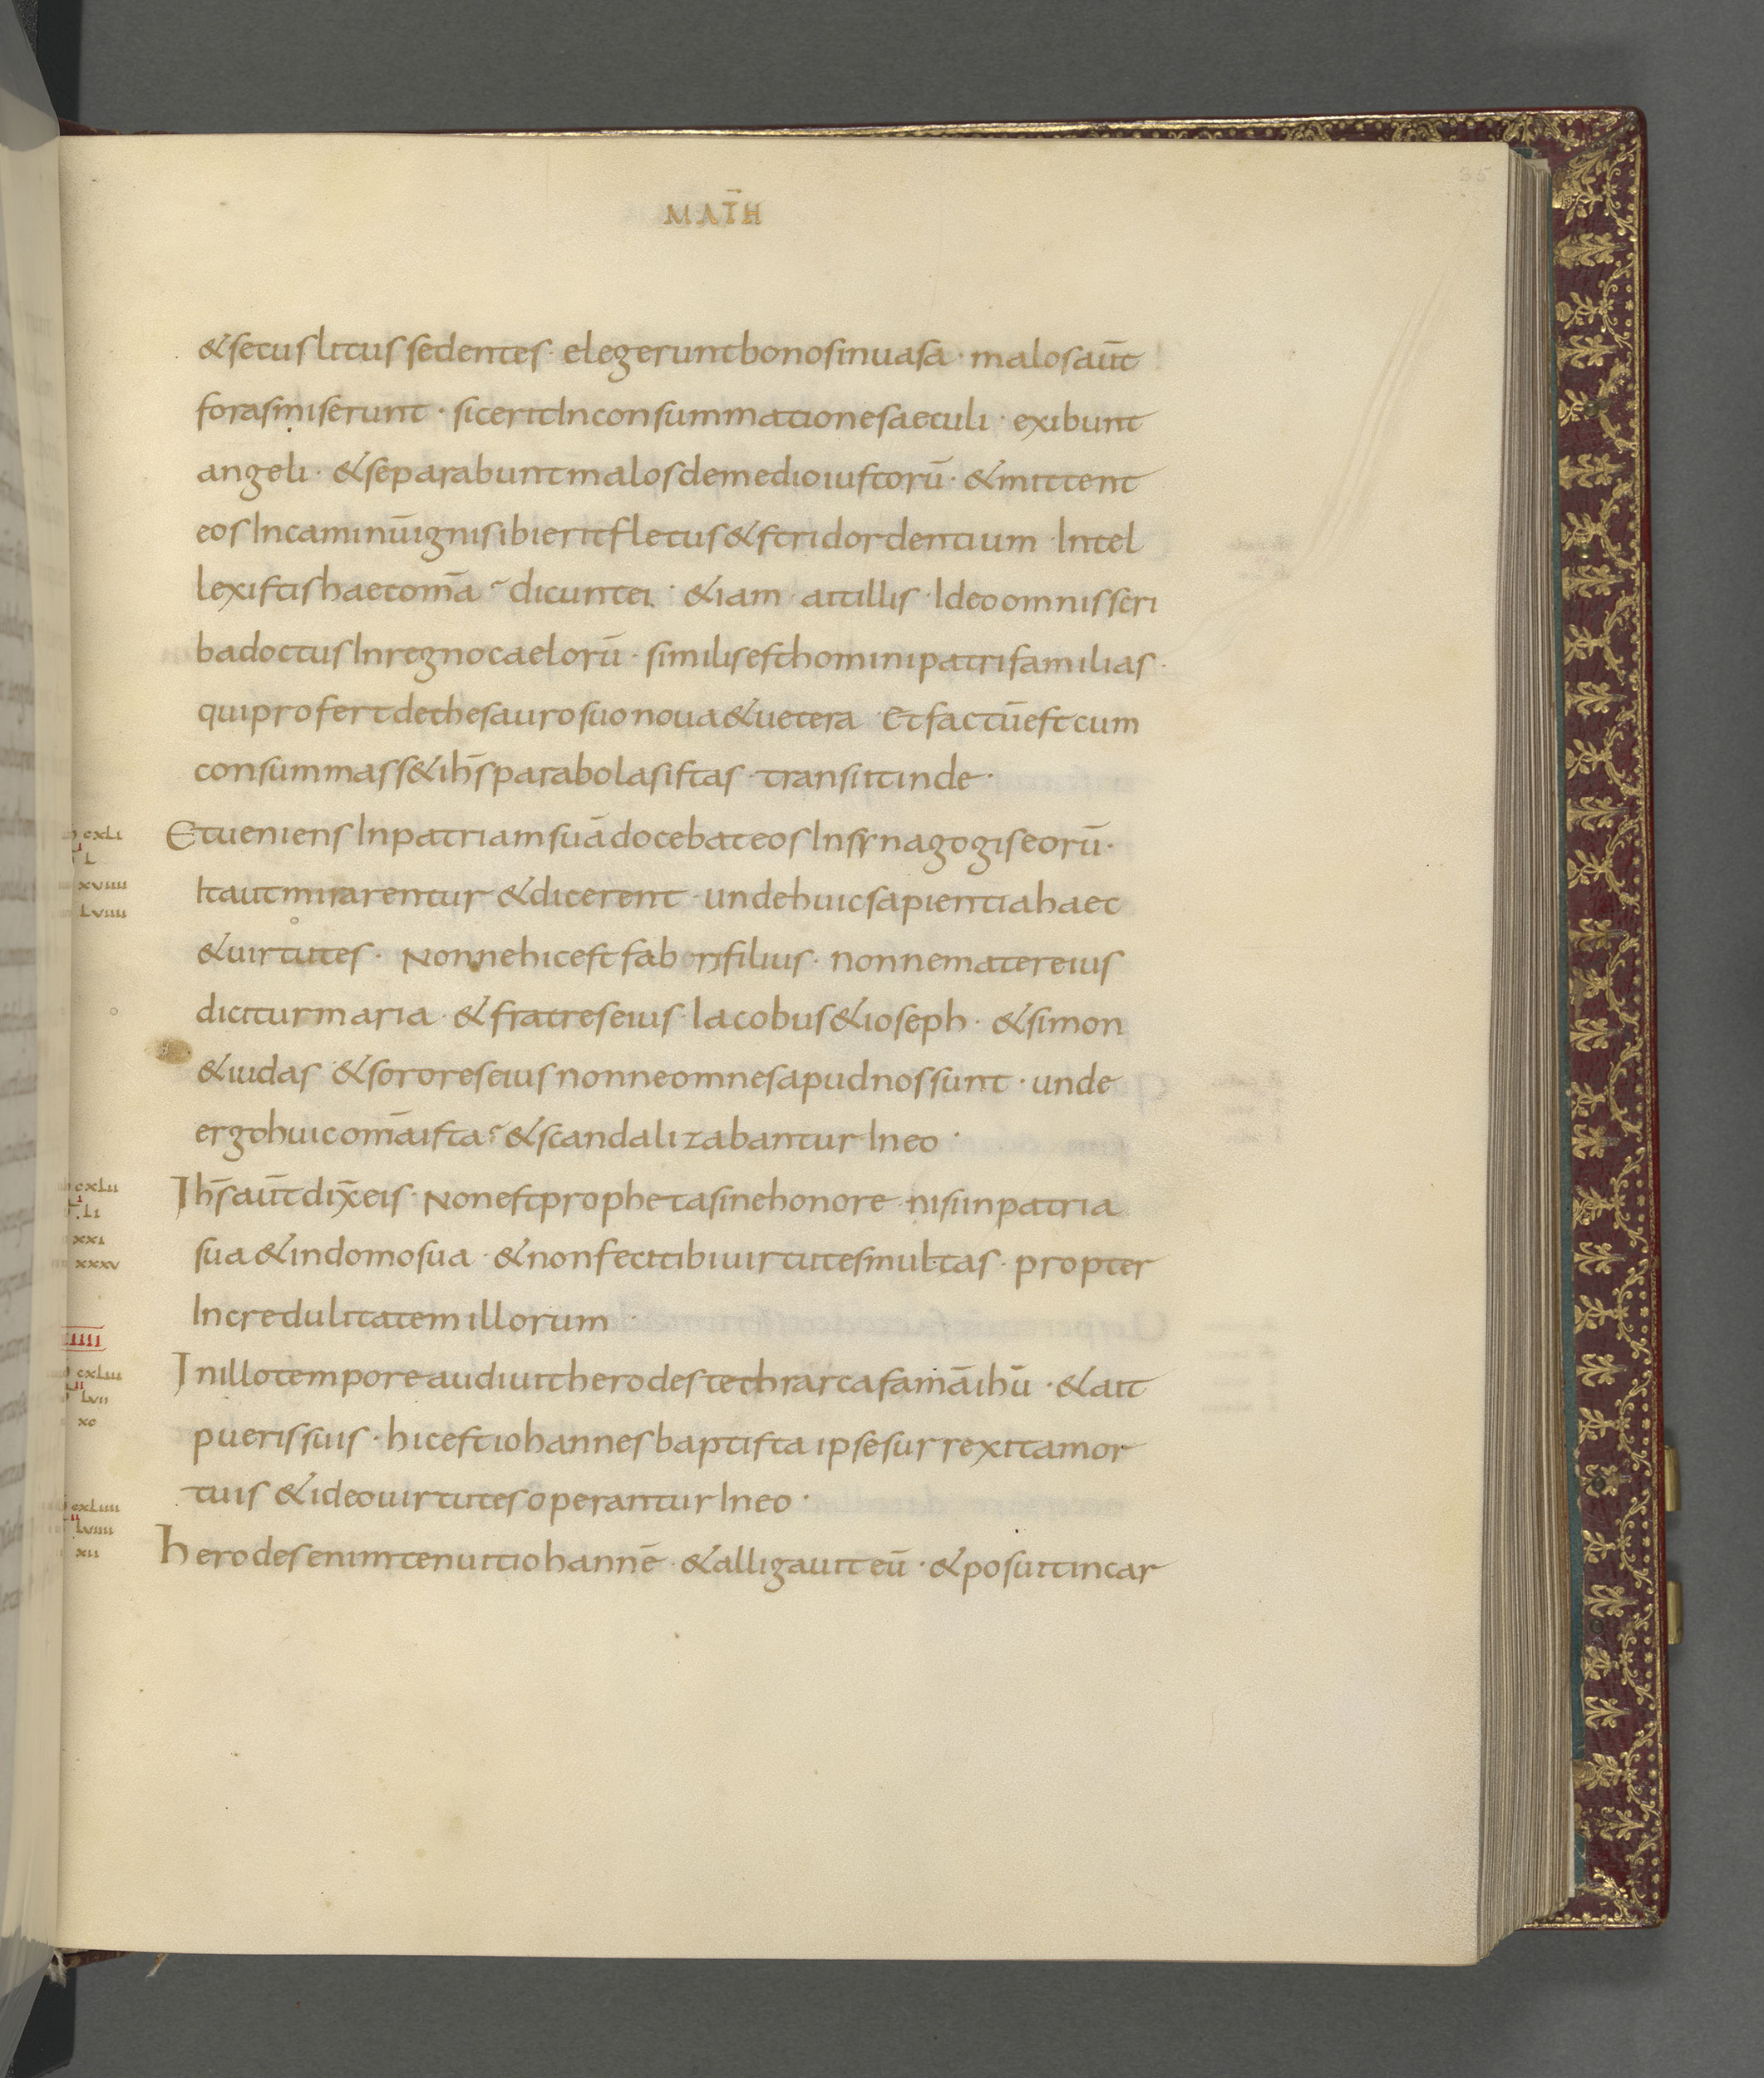 35
MAT̄H
& secus litus sedentes · elegerunt bonos in uasa · malos aūt
foras miserunt · sic erit In consummatione saeculi · exibunt
angeli · & separabunt malos de medio iustorū · & mittent
eos In caminū ignis ibi erit fletus & stridor dentium · Intel
lexistis haec om̄a dicunt ei · &iam · ait illis · Ideo omnis scri
ba doctus In regno caelorū · similis est homini patri familias ·
qui profert de thesauro suo noua & uetera Et factū est cum
consummass& ih̄s parabolas istas · transiit inde ·
cxli
l
xviiii
lviiii
Et ueniens In patriam suā docebat eos In synagogis eorū ·
Ita ut mirarentur & dicerent · unde huic sapientia haec
& uirtutes · Nonne hic est fabri filius · nonne mater eius
dicitur maria · & fratres eius · Iacobus & ioseph · & simon
& iudas & sorores eius nonne omnes apud nos sunt · unde
ergo huic om̄a ista & scandalizabantur In eo ·
cxlii
li
xxi
xxxv
Ih̄s aūt dix̄ eis · Non est propheta sine honore · nisi in patria
sua & in domo sua · & non fecit ibi uirtutes multas · propter
Incredulitatem illorum ·
iiii
cxliii
lvii
xc
In illo tempore audiuit herodes techrarca famā ih̄u · & ait
pueris suis · hic est iohannes baptista ipse surrexit a mor
tuis & ideo uirtutes operantur In eo ·
cxliiii
lviiii
xii
herodes enim tenuit iohannē · & alligauit eū · & posuit in car